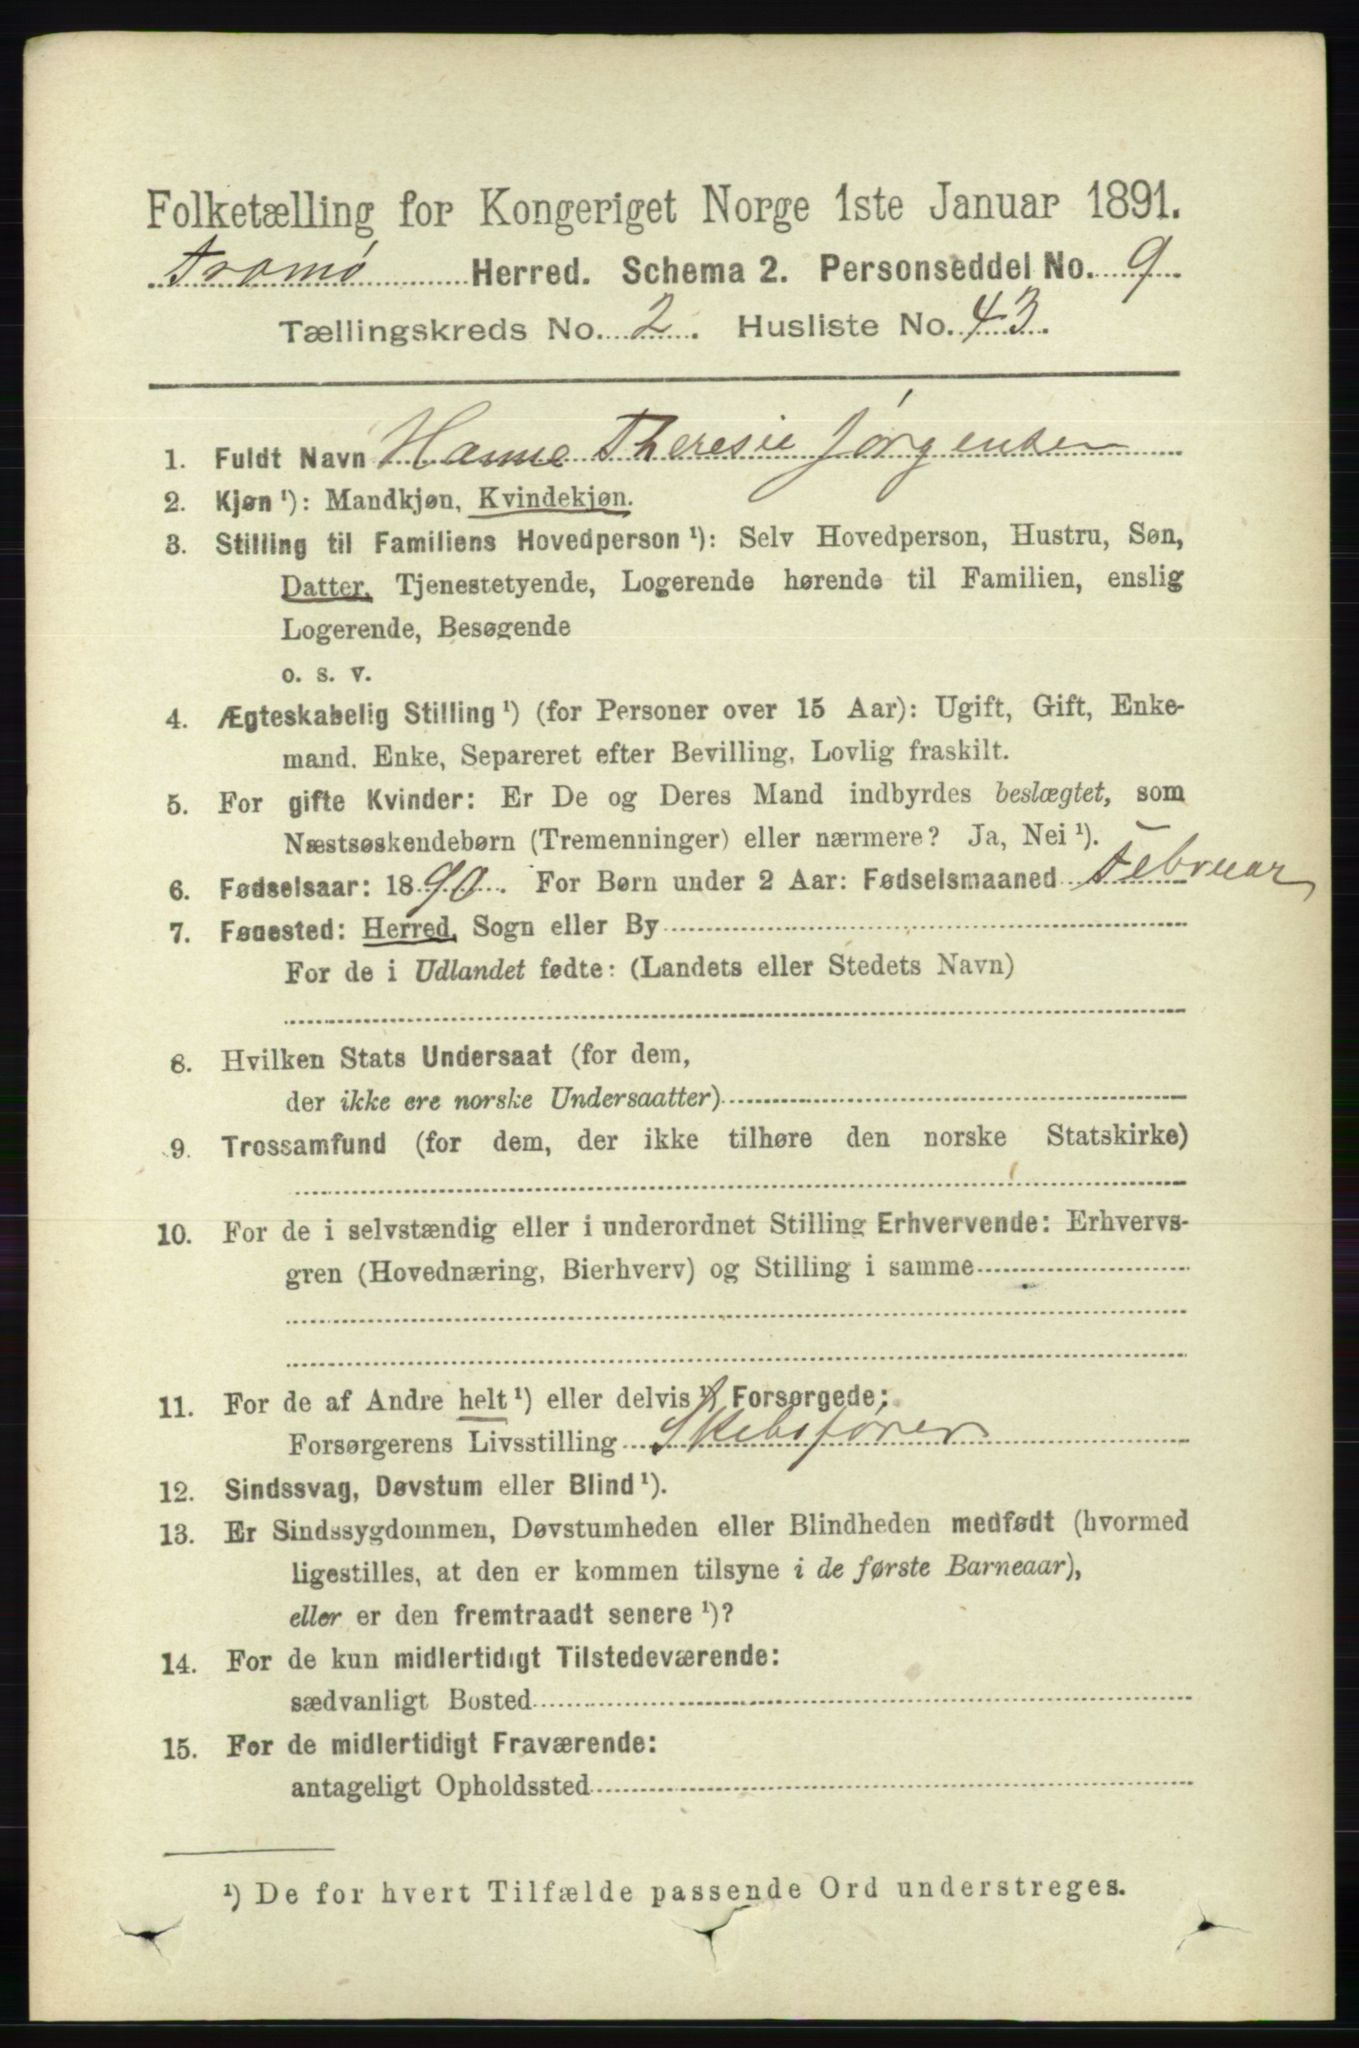 Folketælling for Kongeriget Norge 1ste Januar 1891.
Tromø Herred. Schema 2. Personseddel No. 9.
Tællingskreds No. 2. Husliste No. 43.
1. Fuldt Navn Hanne Theresie Jørgensen
2. Kjøn ¹): Mandkjøn, Kvindekjøn.
3. Stilling til Familiens Hovedperson ¹): Selv Hovedperson, Hustru, Søn,
Datter, Tjenestetyende, Logerende hørende til Familien, enslig
Logerende, Besøgende
o. s. v.
4. Ægteskabelig Stilling ¹) (for Personer over 15 Aar): Ugift, Gift, Enke-
mand. Enke, Separeret efter Bevilling, Lovlig fraskilt.
5. For gifte Kvinder: Er De og Deres Mand indbyrdes beslægtet, som
Næstsøskendebørn (Tremenninger) eller nærmere? Ja, Nei ¹).
6. Fødselsaar: 1890. For Børn under 2 Aar: Fødselsmaaned Februar
7. Fødested: Herred, Sogn eller By
For de i Udlandet fødte: (Landets eller Stedets Navn)
8. Hvilken Stats Undersaat (for dem,
der ikke ere norske Undersaatter)
9. Trossamfund (for dem, der ikke tilhøre den norske Statskirke)
10. For de i selvstændig eller i underordnet Stilling Erhvervende: Erhvervs-
gren (Hovednæring, Bierhverv) og Stilling i samme
11. For de af Andre helt ¹) eller delvis ¹) Forsørgede:
Forsørgerens Livsstilling Skibsfører
12. Sindssvag, Døvstum eller Blind ¹).
13. Er Sindssygdommen, Døvstumheden eller Blindheden medfødt (hvormed
ligestilles, at den er kommen tilsyne i de første Barneaar),
eller er den fremtraadt senere ¹)?
14. For de kun midlertidigt Tilstedeværende:
sædvanligt Bosted
15. For de midlertidigt Fraværende:
antageligt Opholdssted
¹) De for hvert Tilfælde passende Ord understreges.